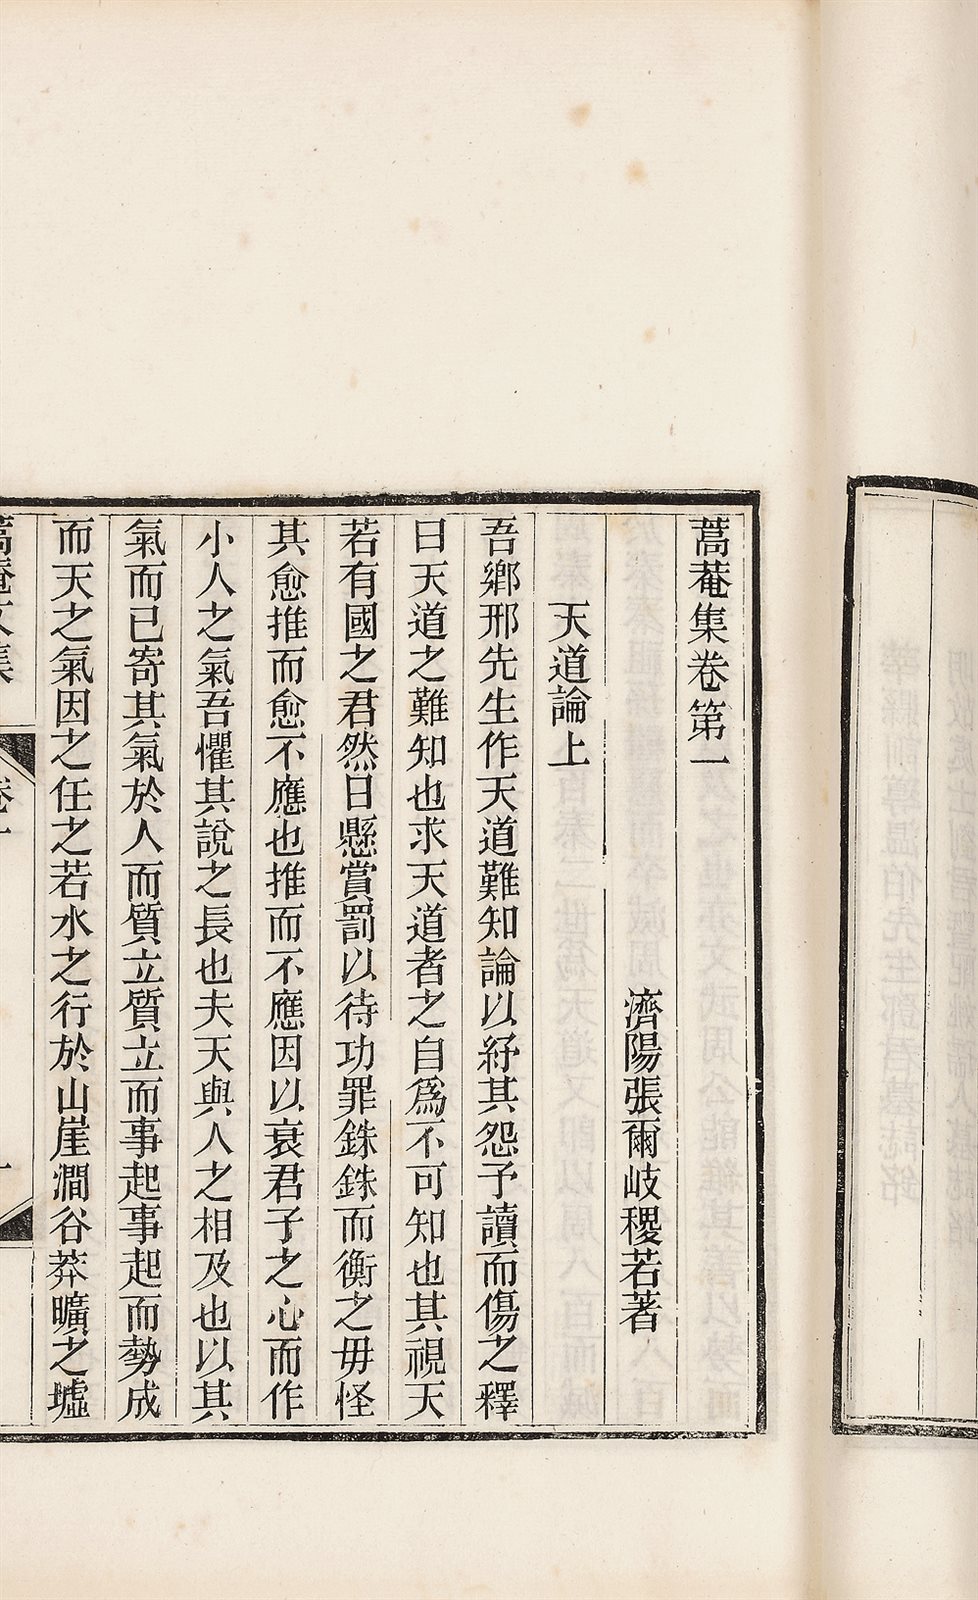 蒿菴集卷第一
濟陽張爾岐稷若著
天道論上
吾鄉邢先生作天道難知論以紓其怨予讀而傷之釋
曰天道之難知也求天道者之自爲不可知也其視天
若有國之君然日懸賞罰以待功罪銖銖而衡之毋怪
其愈推而愈不應也推而不應因以衰君子之心而作
小人之氣吾懼其說之長也夫天與人之相及也以其
氣而已寄其氣於人而質立質立而事起事起而勢成
而天之氣因之任之若水之行於山崖澗谷莽曠之墟
蒿菴文集 卷一 一